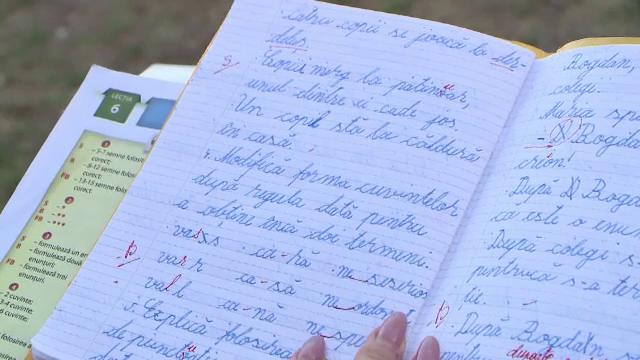 LECȚIA
6
- 5-7 semne folosi
corect;
- 8-12 semne folosi
corect;
- 13-15 semne folosi
corect.
- formulează un e
- formulează două
enunțuri;
- formulează trei
enunțuri.
- 2 cuvinte;
3-4 cuvinte;
patru copii se joacă la der-
deluș.
Copiii merg la patinoar,
unul dintre ei cade jos.
Un copil stă la căldură
în casă.
4. Modifică forma cuvintelor
după regula dată pentru
a obține încă doi termeni.
vas s ca-ră ne serio
vas r ca-să ne ordo
val l ca-nă ne spe
5. Explică folosirea
de punct
Bogdan,
colegi.
Maria sp
- Bogda
După Bogda
ca este o enu
După colegi s-
pentrucă s-a ter
După Bogdan